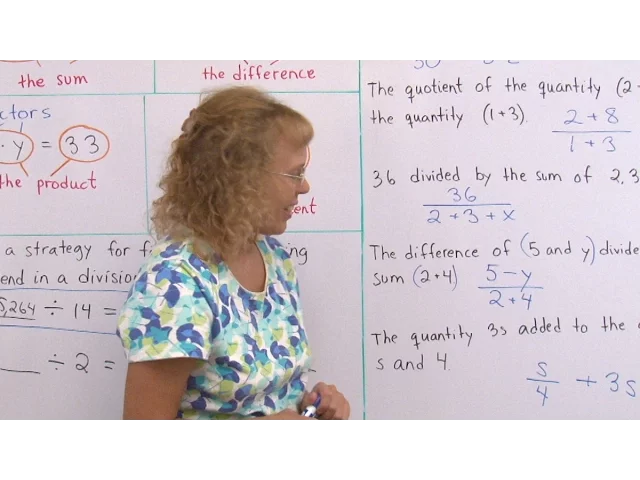 the sum
the difference
ctors
· y = 33
the product
ent
a strategy for f
ing
end in a division
5,264 ÷ 14 =
___ ÷ 2 =
The quotient of the quantity (2
the quantity (1+3).
2 + 8
1 + 3
36 divided by the sum of 2, 3
36
2 + 3 + x
The difference of (5 and y) divide
sum (2+4)
5 - y
2 + 4
The quantity 3s added to the
s and 4.
s
4
+ 3s